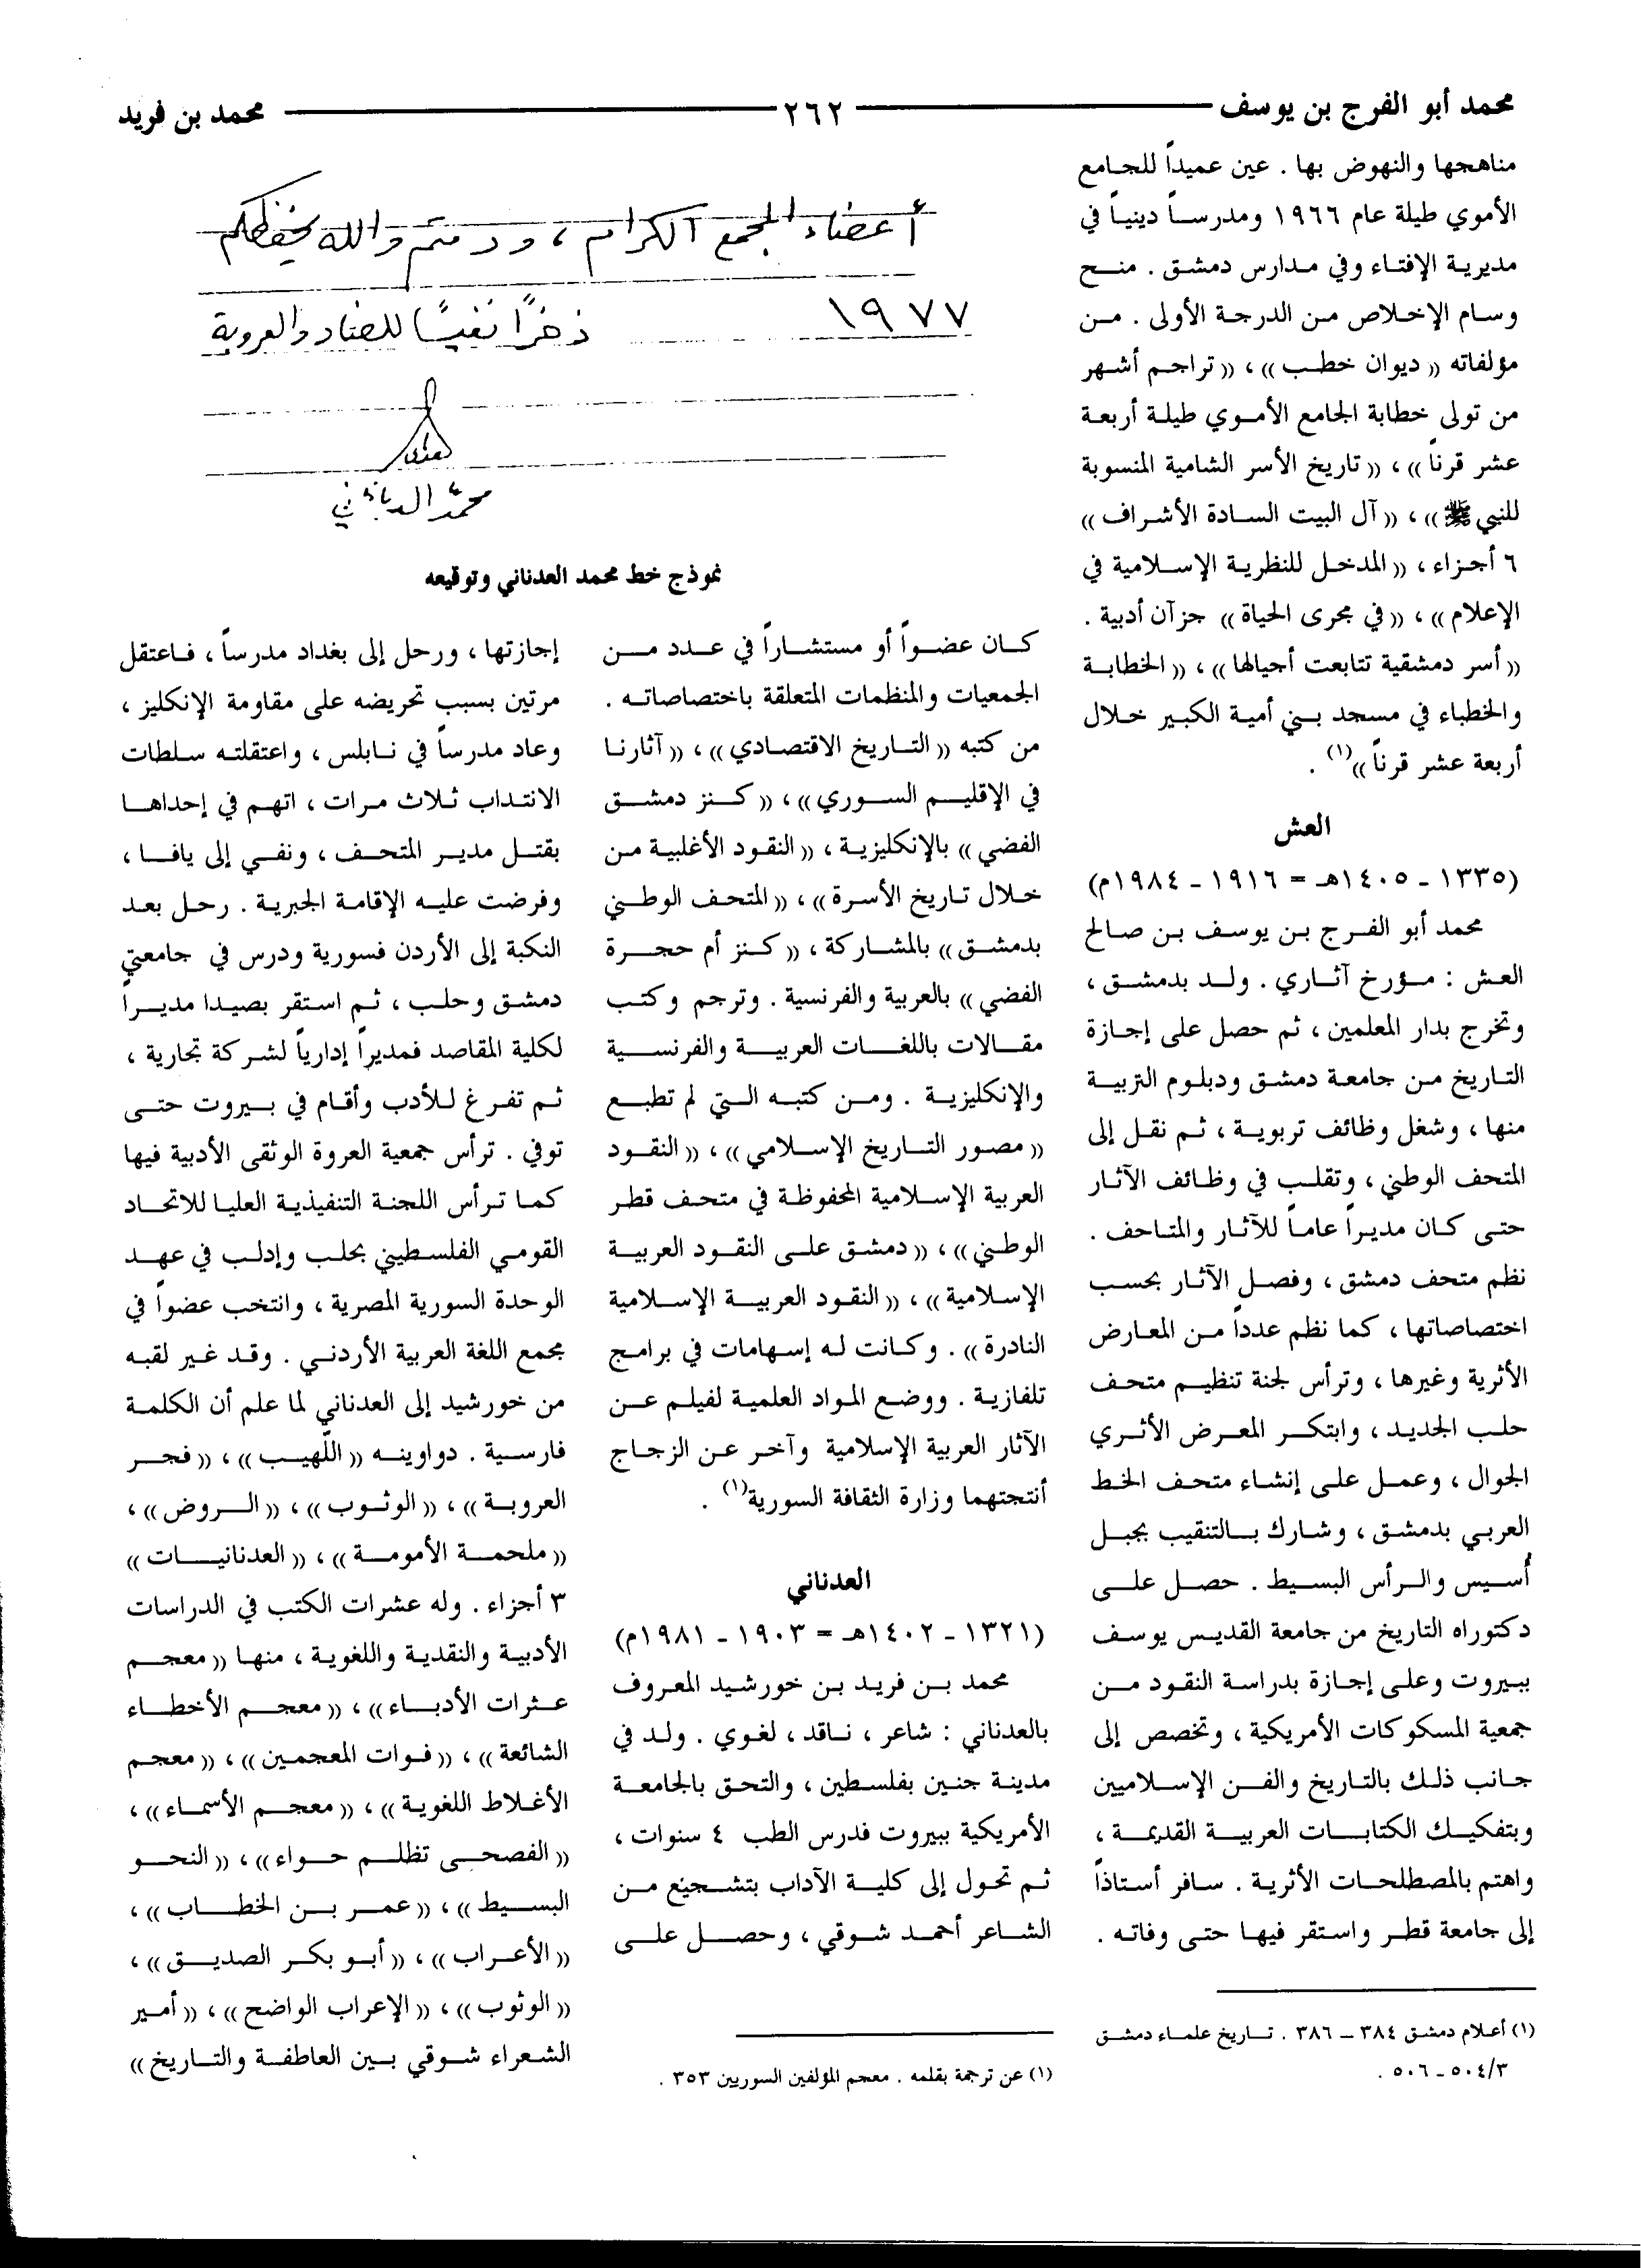 محمد أبو الفرج بن يوسف ٢٦٢ محمد بن فريد
مناهجها والنهوض بها . عين عميداً للجامع
الأموي طيلة عام ١٩٦٦ ومدرساً دينياً في
مديرية الإفتاء وفي مدارس دمشق . منح
وسام الإخلاص من الدرجة الأولى . من
مؤلفاته « ديوان خطب » ، « تراجم أشهر
من تولى خطابة الجامع الأموي طيلة أربعة
عشر قرناً » ، « تاريخ الأسر الشامية المنسوبة
للنبي ﷺ » ، « آل البيت السادة الأشراف »
٦ أجزاء ، « المدخل للنظرية الإسلامية في
الإعلام » ، « في مجرى الحياة » جزآن أدبية .
« أسر دمشقية تتابعت أجيالها » ، « الخطابة
والخطباء في مسجد بني أمية الكبير خلال
أربعة عشر قرناً »(١) .
العش
(١٣٣٥ - ١٤٠٥هـ = ١٩١٦ - ١٩٨٤م)
محمد أبو الفرج بن يوسف بن صالح
العش : مؤرخ آثاري . ولد بدمشق ،
وتخرج بدار المعلمين ، ثم حصل على إجازة
التاريخ من جامعة دمشق ودبلوم التربية
منها ، وشغل وظائف تربوية ، ثم نقل إلى
المتحف الوطني ، وتقلب في وظائف الآثار
حتى كان مديراً عاماً للآثار والمتاحف .
نظم متحف دمشق ، وفصل الآثار بحسب
اختصاصاتها ، كما نظم عدداً من المعارض
الأثرية وغيرها ، وترأس لجنة تنظيم متحف
حلب الجديد ، وابتكر المعرض الأثري
الجوال ، وعمل على إنشاء متحف الخط
العربي بدمشق ، وشارك بالتنقيب بجبل
أُسيس والرأس البسيط . حصل على
دكتوراه التاريخ من جامعة القديس يوسف
ببيروت وعلى إجازة بدراسة النقود من
جمعية المسكوكات الأمريكية ، وتخصص إلى
جانب ذلك بالتاريخ والفن الإسلاميين
وبتفكيك الكتابات العربية القديمة ،
واهتم بالمصطلحات الأثرية . سافر أستاذاً
إلى جامعة قطر واستقر فيها حتى وفاته .
(١) أعلام دمشق ٣٨٤ - ٣٨٦ . تاريخ علماء دمشق
٥٠٤/٣ - ٥٠٦ .
أعضاء المجمع الكرام ، ودمتم والله يحفظكم
١٩٧٧ ذخرًا نفيسًا للضاد والعروبة
محمد العدناني
نموذج خط محمد العدناني وتوقيعه
كان عضواً أو مستشاراً في عدد من
الجمعيات والمنظمات المتعلقة باختصاصاته .
من كتبه « التاريخ الاقتصادي » ، « آثارنا
في الإقليم السوري » ، « كنز دمشق
الفضي » بالإنكليزية ، « النقود الأغلبية من
خلال تاريخ الأسرة » ، « المتحف الوطني
بدمشق » بالمشاركة ، « كنز أم حجرة
الفضي » بالعربية والفرنسية . وترجم وكتب
مقالات باللغات العربية والفرنسية
والإنكليزية . ومن كتبه التي لم تطبع
« مصور التاريخ الإسلامي » ، « النقود
العربية الإسلامية المحفوظة في متحف قطر
الوطني » ، « دمشق على النقود العربية
الإسلامية » ، « النقود العربية الإسلامية
النادرة » . وكانت له إسهامات في برامج
تلفازية . ووضع المواد العلمية لفيلم عن
الآثار العربية الإسلامية وآخر عن الزجاج
أنتجتهما وزارة الثقافة السورية(١) .
العدناني
(١٣٢١ - ١٤٠٢هـ = ١٩٠٣ - ١٩٨١م)
محمد بن فريد بن خورشيد المعروف
بالعدناني : شاعر ، ناقد ، لغوي . ولد في
مدينة جنين بفلسطين ، والتحق بالجامعة
الأمريكية ببيروت فدرس الطب ٤ سنوات ،
ثم تحول إلى كلية الآداب بتشجيع من
الشاعر أحمد شوقي ، وحصل على
(١) عن ترجمة بقلمه . معجم المؤلفين السوريين ٣٥٣ .
إجازتها ، ورحل إلى بغداد مدرساً ، فاعتقل
مرتين بسبب تحريضه على مقاومة الإنكليز ،
وعاد مدرساً في نابلس ، واعتقلته سلطات
الانتداب ثلاث مرات ، اتهم في إحداها
بقتل مدير المتحف ، ونفي إلى يافا ،
وفرضت عليه الإقامة الجبرية . رحل بعد
النكبة إلى الأردن فسورية ودرس في جامعتي
دمشق وحلب ، ثم استقر بصيدا مديراً
لكلية المقاصد فمديراً إدارياً لشركة تجارية ،
ثم تفرغ للأدب وأقام في بيروت حتى
توفي . ترأس جمعية العروة الوثقى الأدبية فيها
كما ترأس اللجنة التنفيذية العليا للاتحاد
القومي الفلسطيني بحلب وإدلب في عهد
الوحدة السورية المصرية ، وانتخب عضواً في
مجمع اللغة العربية الأردني . وقد غير لقبه
من خورشيد إلى العدناني لما علم أن الكلمة
فارسية . دواوينه « اللّهيب » ، « فجر
العروبة » ، « الوثوب » ، « الروض » ،
« ملحمة الأمومة » ، « العدنانيات »
٣ أجزاء . وله عشرات الكتب في الدراسات
الأدبية والنقدية واللغوية ، منها « معجم
عثرات الأدباء » ، « معجم الأخطاء
الشائعة » ، « فوات المعجمين » ، « معجم
الأغلاط اللغوية » ، « معجم الأسماء » ،
« الفصحى تظلم حواء » ، « النحو
البسيط » ، « عمر بن الخطاب » ،
« الأعراب » ، « أبو بكر الصديق » ،
« الوثوب » ، « الإعراب الواضح » ، « أمير
الشعراء شوقي بين العاطفة والتاريخ »